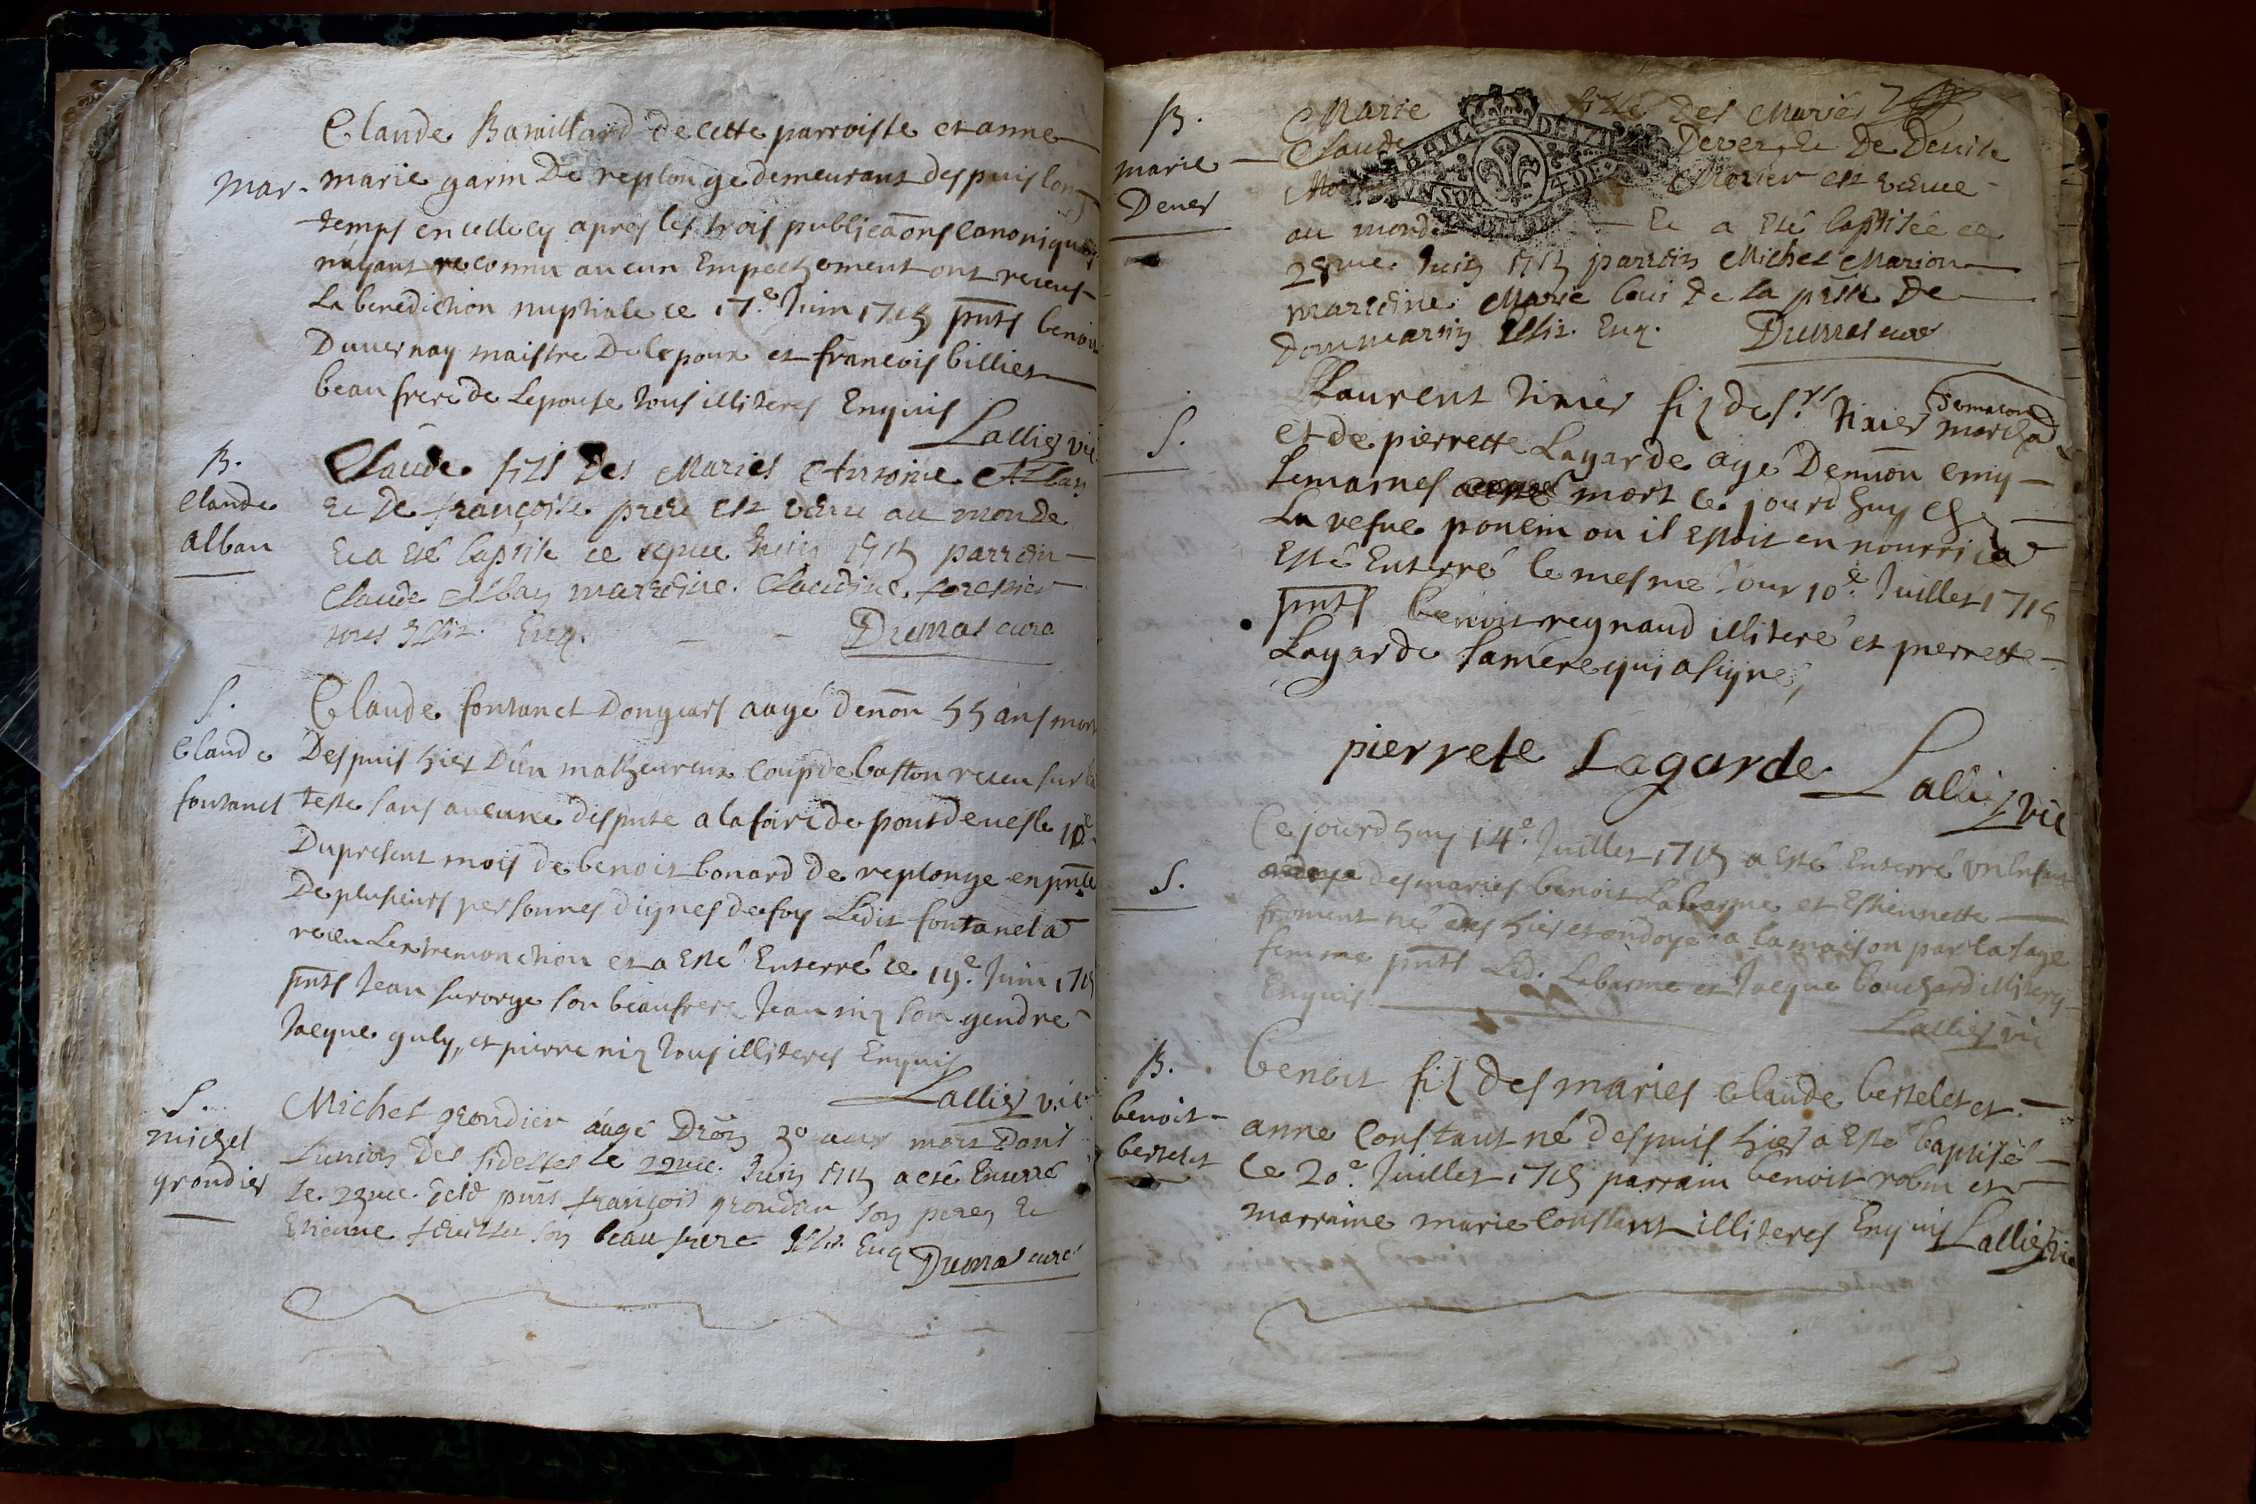 Claude Bavaillard de cette parroisse et anne
mar. marie garin De replonge demeurant despuis long
temps en cellecy apres les trois publicãons canoniques
n'ayant reconnu aucun Empeschement ont receus
La benediction nuptiale ce 17.e Juin 1715 pnts benoit
Duvernay maistre De lepoux et francois billiet
beau frere de Lepouse tous illiteres Enquis
Lallier vic
B.
claude
alban
Claude fils des Mariés Antoine Alban
Et De françoise prere est venu au monde
Et a esté baptisé ce Juin 1715 parrein
Claude Alban marreine Claudine forestier
tous Illit. Enq. Dumas curé
S.
Claude
fontanet
Claude fontanet Dongears aagé denõn 55 ans mort
Despuis hier D'un malheureux coup de baston receu sur la
teste sans aucune dispute a la foire de pont de vesle 18e
Du present mois de benoit bonard de replonge en pnce
De plusieurs personnes dignes de foy Ledit fontanet a
receu Lextremonction et a Esté Enterré ce 19.e Juin 1715
pnts Jean sa beaufrere Jean niz son gendre
Jacque guly, et pierre niz tous illiteres Enquis
Lallier vic
S.
michel
grondier
Michel grondier aagé 30 ans mort Dans
Lunion des fidelles le 22me. Juin 1715 a esté Enterré
le 23me. pnts françois grondier son pere, Et
Etienne son beau frere Illit. Enq Dumas curé
B.
marie
Dever
Marie fille Des Mariés
Claude Dever, Et De Denise
Morier est venue
au monde Et a esté baptisée ce
28me. Juin 1715 parrein Michel Marion
marreine Marie De la De
Dommartin Illit. Enq. Dumas curé
S.
Laurent tixier filz de s.r tixier marchad
et de pierrette Lagarde agé Denuõn cinq
semaines mort ce jourdhuy chez
La vefve ponein ou il estoit en nourri a
Esté Enterré le mesme jour 10.e Juillet 1715
pnts benoit reynaud illiteré et pierrette
Lagarde sa mere qui a signé,
pierrete Lagarde Lallier vic
S.
Ce jourdhuy 14.e Juillet 1715 a Esté Enterré un Enfant
des maries benoit Labarme et Estiennette
froment né des hier et ondoyé a la maison par la sage
femme pnts Led. Labarme et Jacque bouchard illiteres
Enquis
Lallier vic
B.
benoit
bertelet
benoit filz des maries Claude bertelet et
anne Constant né despuis hier a Esté baptisé
ce 20.e Juillet 1715 parrain benoit robin et
marraine marie Constant illiteres Enquis Lallier vic